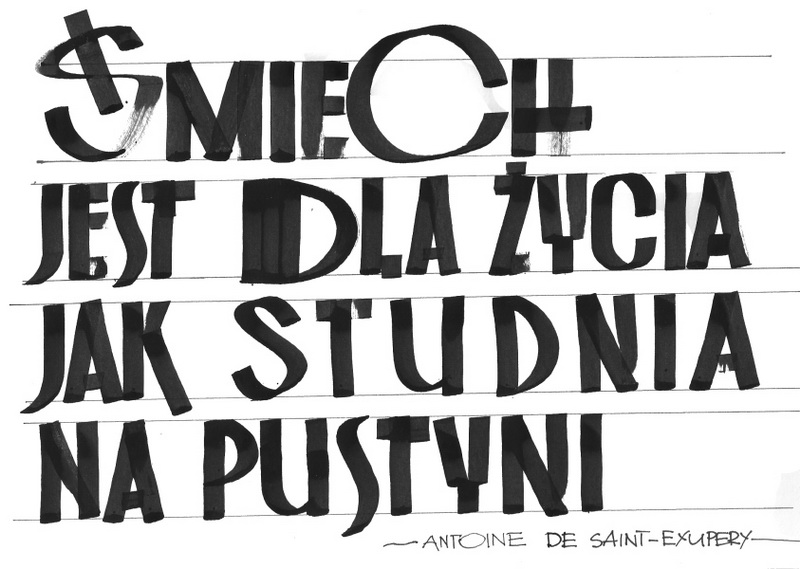 ŚMIECH
JEST DLA ŻYCIA
JAK STUDNIA
NA PUSTYNI
~ANTOINE DE SAINT-EXUPERY~